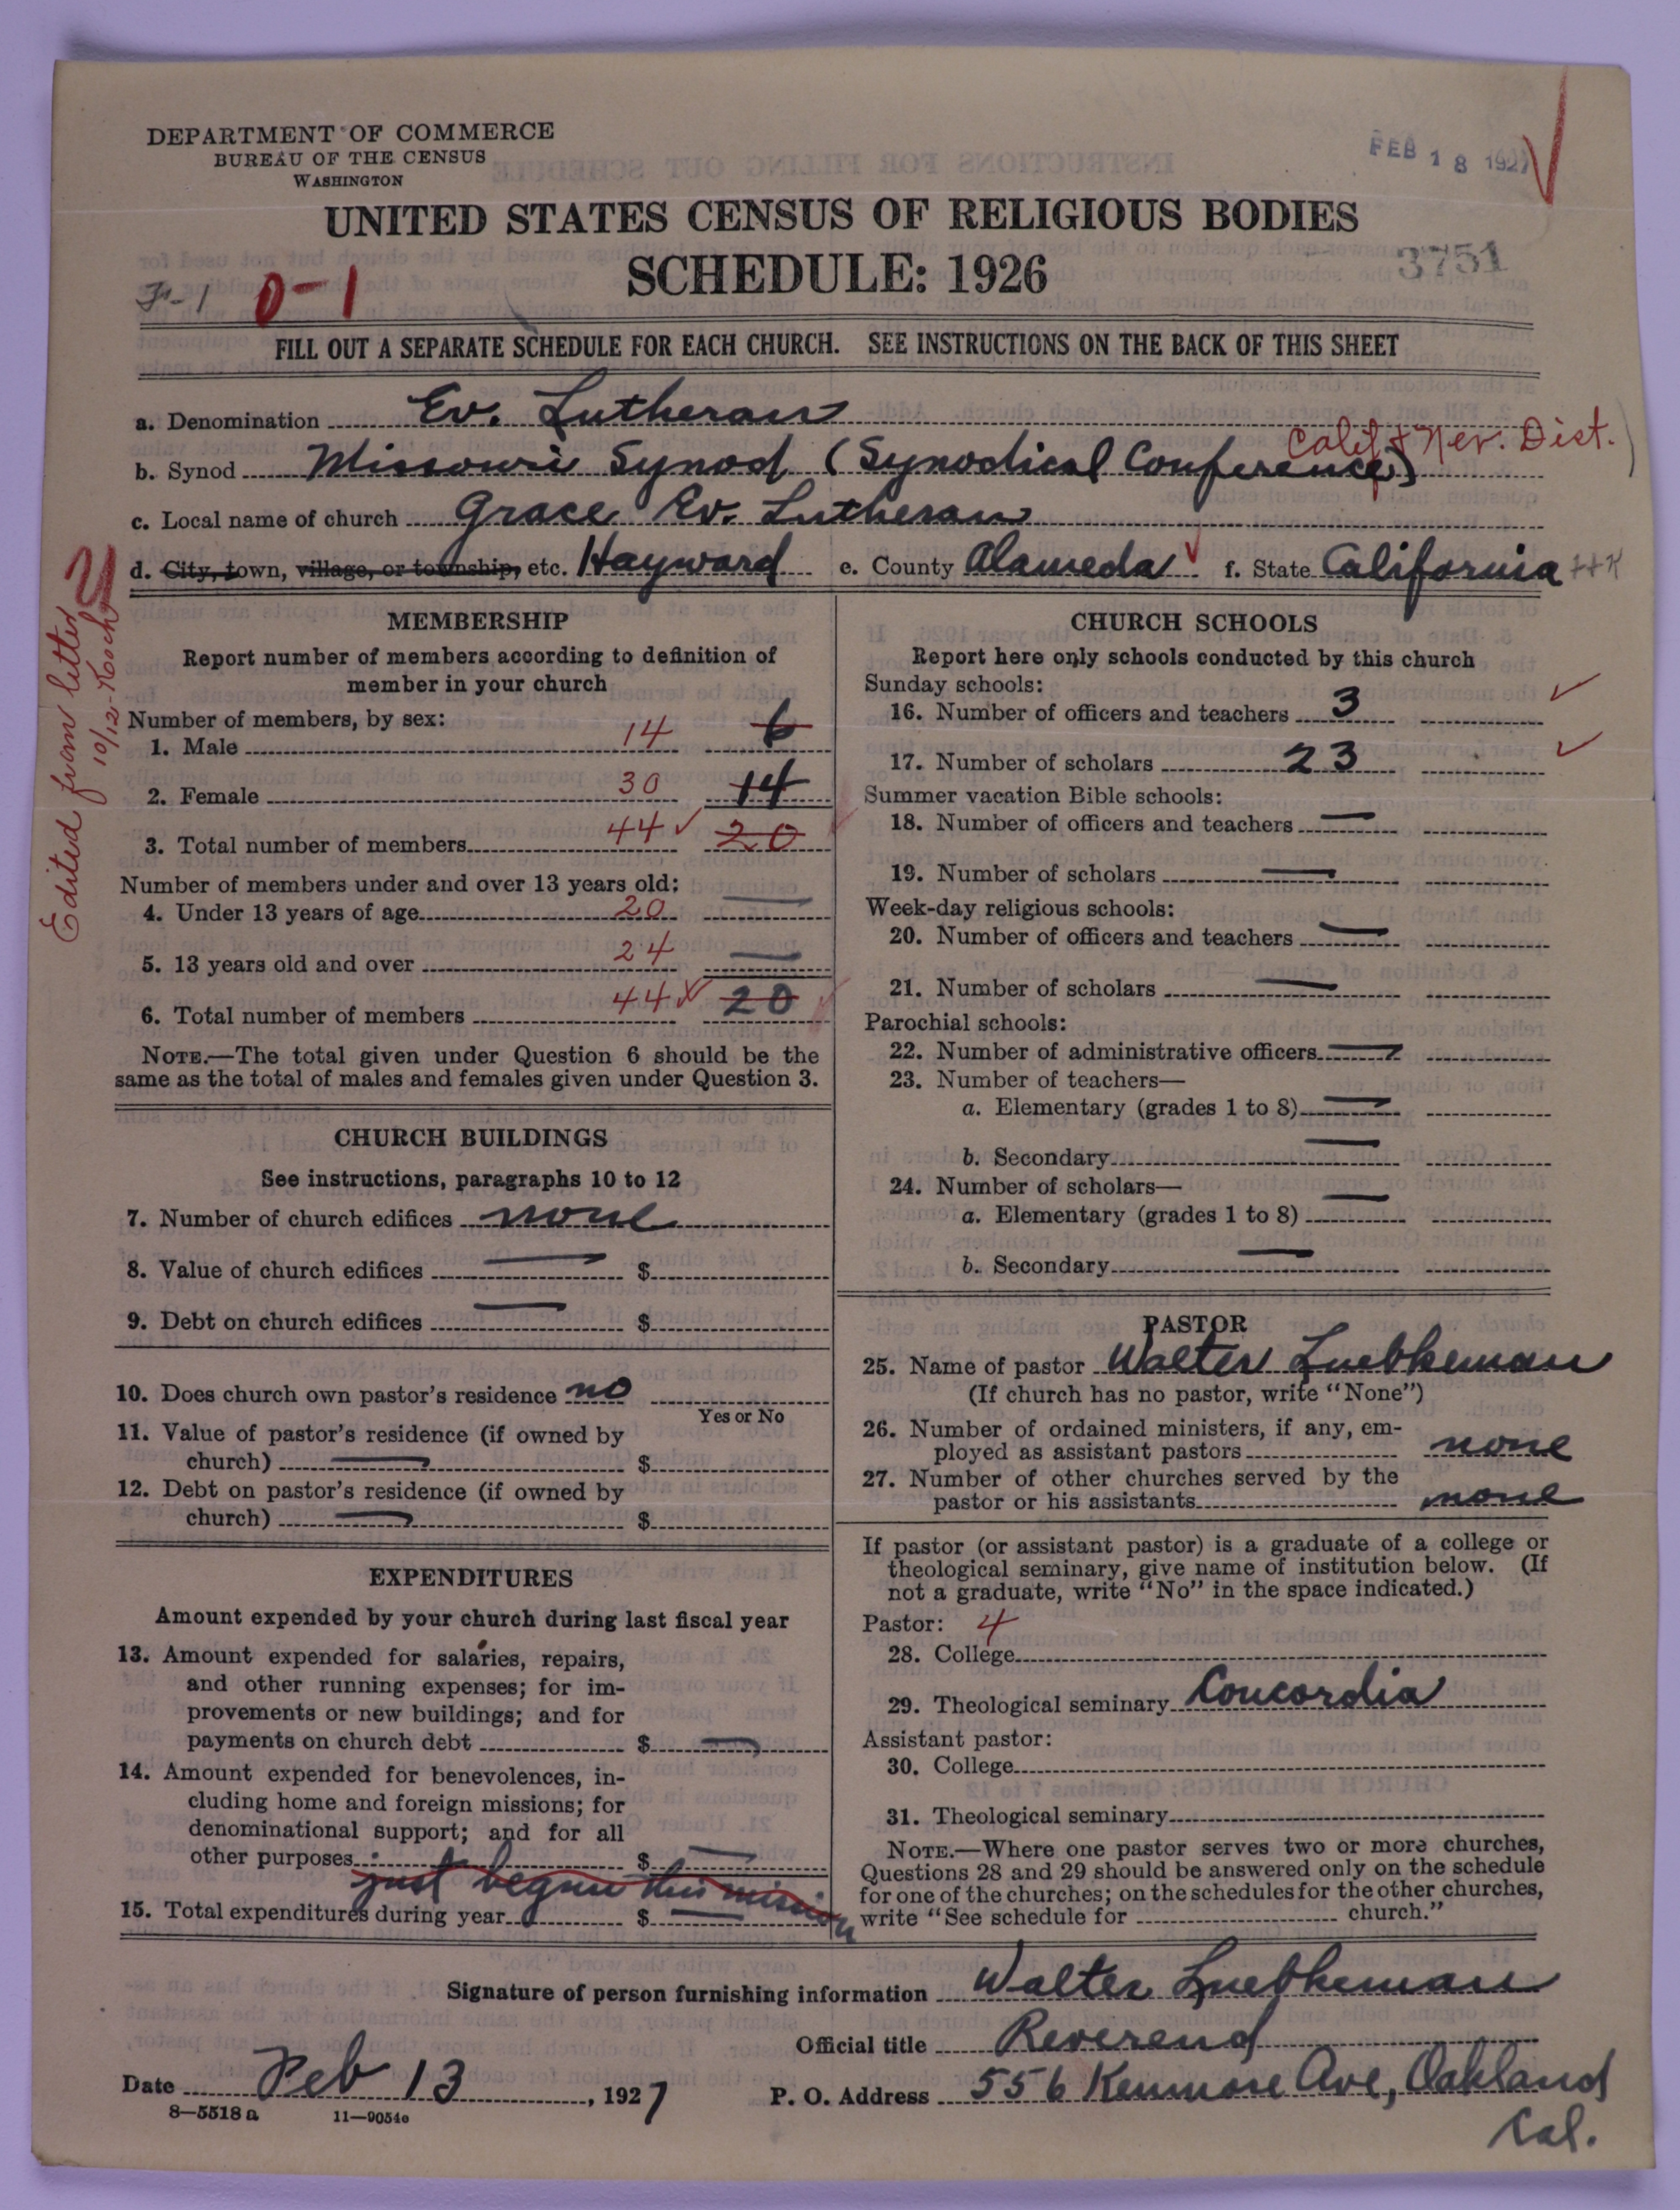 DEPARTMENT OF COMMERCE
BUREAU OF THE CENSUS
WASHINGTON
FEB 18 1927
UNITED STATES CENSUS OF RELIGIOUS BODIES
SCHEDULE: 1926
3751
F-1 0-1
FILL OUT A SEPARATE SCHEDULE FOR EACH CHURCH. SEE INSTRUCTIONS ON THE BACK OF THIS SHEET
a. Denomination Ev. Lutheran
Calif & Nev. Dist.
b. Synod Missouri Synod (Synodical Conference)
c. Local name of church Grace Ev. Lutheran
d. City, town, village, or township, etc. Hayward e. County Alameda f. State California
Edited from letter
10/12-Koch
MEMBERSHIP
Report number of members according to definition of
member in your church
Number of members, by sex:
1. Male 14 6
2. Female 30 14
3. Total number of members 44 20
Number of members under and over 13 years old:
4. Under 13 years of age 20 —
5. 13 years old and over 24 —
6. Total number of members 44 20
NOTE.—The total given under Question 6 should be the
same as the total of males and females given under Question 3.
CHURCH BUILDINGS
See instructions, paragraphs 10 to 12
7. Number of church edifices none
8. Value of church edifices — $
9. Debt on church edifices — $
10. Does church own pastor's residence no
Yes or No
11. Value of pastor's residence (if owned by
church) — $
12. Debt on pastor's residence (if owned by
church) — $
EXPENDITURES
Amount expended by your church during last fiscal year
13. Amount expended for salaries, repairs,
and other running expenses; for im-
provements or new buildings; and for
payments on church debt $ —
14. Amount expended for benevolences, in-
cluding home and foreign missions; for
denominational support; and for all
other purposes $ —
just begun this mission
15. Total expenditures during year $ —
CHURCH SCHOOLS
Report here only schools conducted by this church
Sunday schools:
16. Number of officers and teachers 3
17. Number of scholars 23
Summer vacation Bible schools:
18. Number of officers and teachers —
19. Number of scholars —
Week-day religious schools:
20. Number of officers and teachers —
21. Number of scholars —
Parochial schools:
22. Number of administrative officers —
23. Number of teachers—
a. Elementary (grades 1 to 8) —
b. Secondary —
24. Number of scholars—
a. Elementary (grades 1 to 8) —
b. Secondary —
PASTOR
25. Name of pastor Walter Luebkeman
(If church has no pastor, write "None")
26. Number of ordained ministers, if any, em-
ployed as assistant pastors none
27. Number of other churches served by the
pastor or his assistants none
If pastor (or assistant pastor) is a graduate of a college or
theological seminary, give name of institution below. (If
not a graduate, write "No" in the space indicated.)
Pastor: 4
28. College
29. Theological seminary Concordia
Assistant pastor:
30. College
31. Theological seminary
NOTE.—Where one pastor serves two or more churches,
Questions 28 and 29 should be answered only on the schedule
for one of the churches; on the schedules for the other churches,
write "See schedule for church."
Signature of person furnishing information Walter Luebkeman
Official title Reverend
Date Feb 13, 1927 P. O. Address 556 Kenmore Ave, Oakland
Cal.
8—5518 a 11—9054c